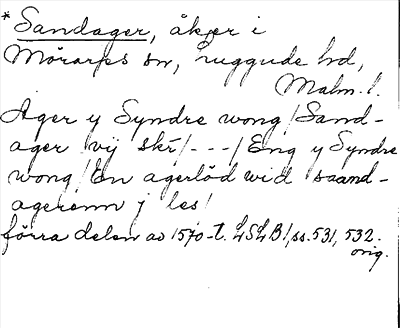 * Sandager, åker i
Mörarps sn, Luggude hd,
Malm. l.
Ager y Syndre wong / Sand-
ager vij skr / - - - / Eng y Syndre
wong / En agerlöd wid saand-
agerenn j les /
förra delen av 1570-t. LSLB 1, ss. 531, 532.
orig.